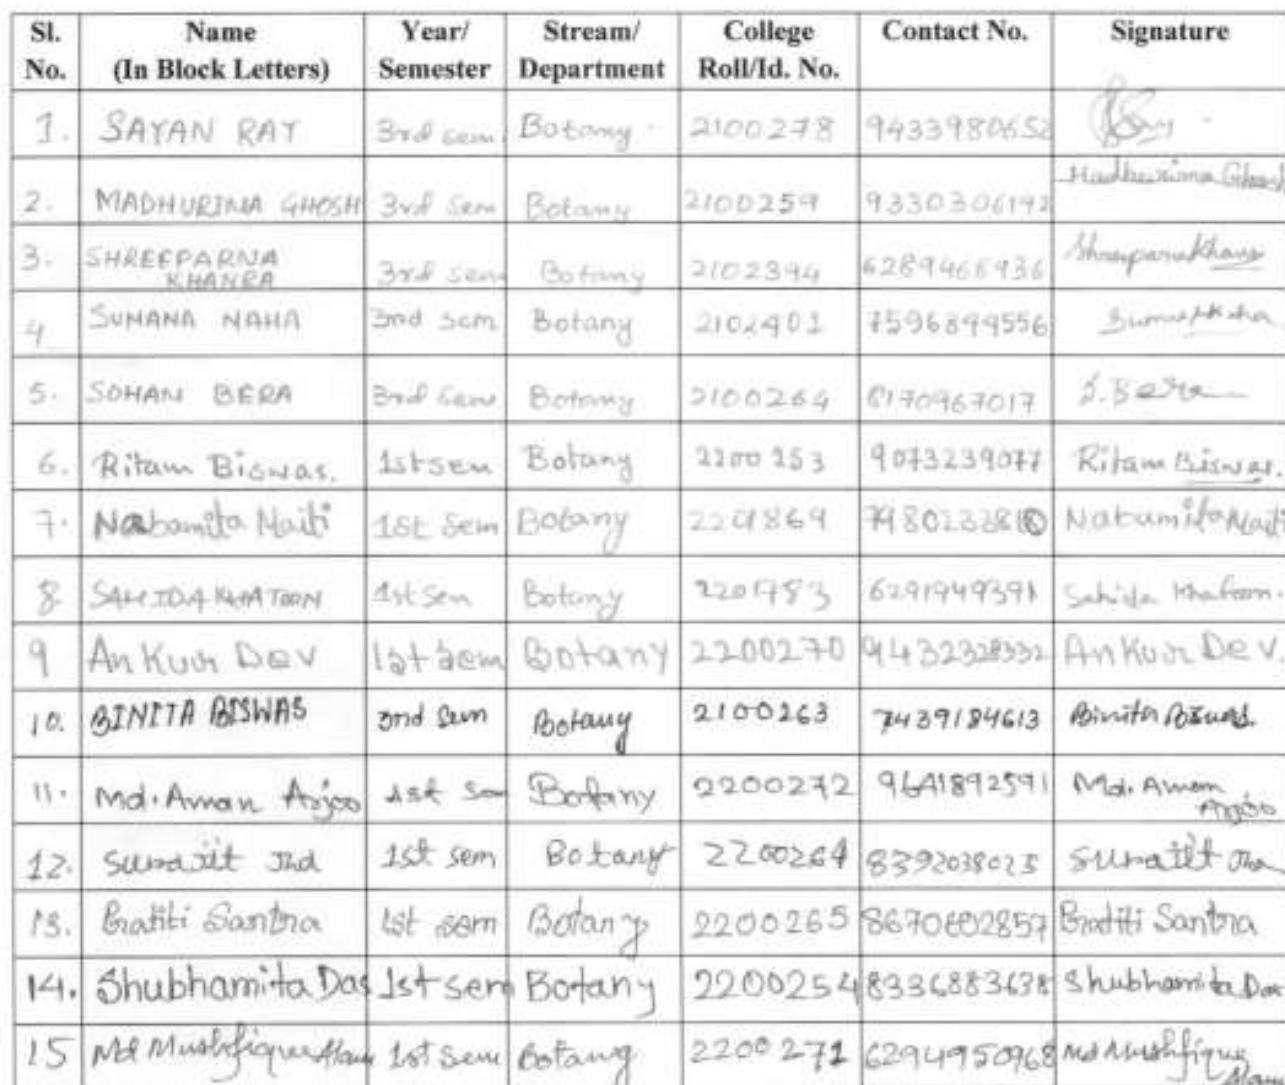 Sl. No. Name (In Block Letters) Year/ Semester Stream/ Department College Roll/Id. No. Contact No. Signature
1. SAYAN RAY 3rd sem Botany 2100278 9433980652
2. MADHURIMA GHOSH 3rd Sem Botany 2100259 9330306192 Madhurima Ghosh
3. SHREEPARNA KHANRA 3rd sem Botany 2102394 6289466936 Shreeparna
4 SUMANA NAHA 3rd sem Botany 2102401 7596899556
5. SOHAN BERA 3rd Sem Botany 2100264 S. Bera
6. Ritam Biswas. 1st sem Botany 2200253 9073239077 Ritam Biswas.
7. Nabamita Maiti 1st Sem Botany 2201869 Nabamita Maiti
8 SAHIDA KHATOON 1st Sem Botany 2201783 6291949391 Sahida Khatoon.
9 Ankur Dev 1st Sem Botany 2200270 9432328332 Ankur Dev.
10. BINITA BISWAS 3rd Sem Botany 2100263 7439184613 Binita Biswas.
11. Md. Aman Arjoo 1st Sem Botany 2200272 9641892591 Md. Aman Arjoo
12. Surajit 1st sem Botany 2200264 8392038023 Surajit
13. Pratiti Santra 1st sem Botany 2200265 8670602857 Pratiti Santra
14. Shubhamita Das 1st sem Botany 2200254 8336883638 Shubhamita Das
15 Md Mushfique Alam 1st Sem Botany 2200271 6294950968 Md Mushfique Alam